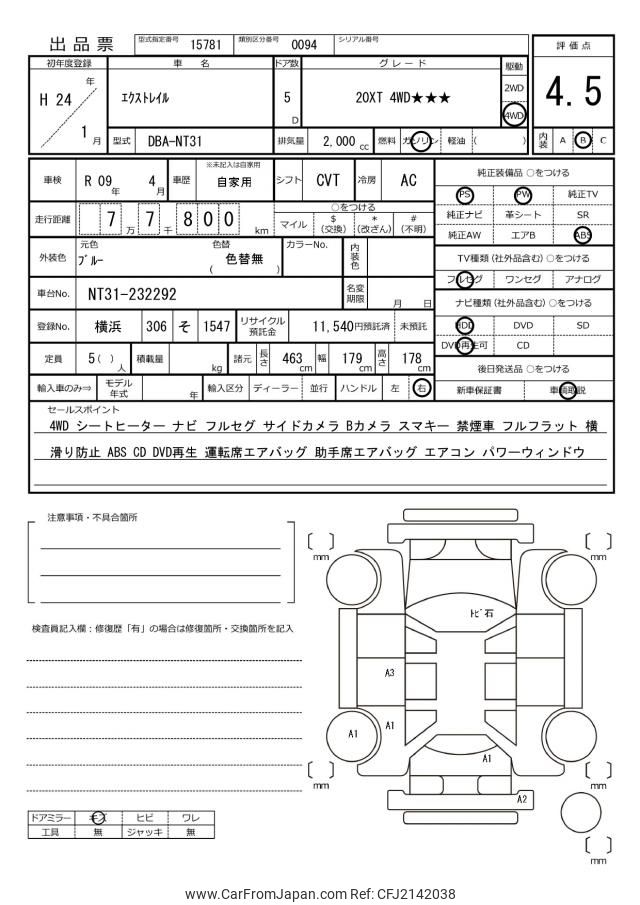 出品票 型式指定番号 15781 類別区分番号 0094 シリアル番号
評価点
4.5
内装 A B C
初年度登録 車名 ドア数 グレード 駆動
H 24 年 1 月
エクストレイル
5 D
20XT 4WD★★★
2WD
4WD
型式 DBA-NT31 排気量 2,000 cc 燃料 ガソリン 軽油 ( )
車検 R 09 年 4 月 車歴 ※未記入は自家用 自家用 シフト CVT 冷房 AC
走行距離 7 万 7 千 8 0 0 km
○をつける
マイル $ (交換) * (改ざん) # (不明)
外装色 元色 ブルー 色替 ( 色替無 ) カラーNo. 内装色
車台No. NT31-232292 名変期限 月 日
登録No. 横浜 306 そ 1547 リサイクル預託金 11,540円預託済 未預託
定員 5 ( ) 人 積載量 kg 諸元 長さ 463 cm 幅 179 cm 高さ 178 cm
輸入車のみ⇒ モデル年式 年 輸入区分 ディーラー 並行 ハンドル 左 右
純正装備品 ○をつける
PS PW 純正TV
純正ナビ 革シート SR
純正AW エアB ABS
TV種類 (社外品含む) ○をつける
フルセグ ワンセグ アナログ
ナビ種類 (社外品含む) ○をつける
HDD DVD SD
DVD再生可 CD
後日発送品 ○をつける
新車保証書 車輌取説
セールスポイント
4WD シートヒーター ナビ フルセグ サイドカメラ Bカメラ スマキー 禁煙車 フルフラット 横
滑り防止 ABS CD DVD再生 運転席エアバッグ 助手席エアバッグ エアコン パワーウィンドウ
注意事項・不具合箇所
検査員記入欄:修復歴「有」の場合は修復箇所・交換箇所を記入
mm
mm
トビ石
A3
A1
A1
A1
A2
mm
mm
mm
ドアミラー キズ ヒビ ワレ
工具 無 ジャッキ 無
www.CarFromJapan.com Ref: CFJ2142038